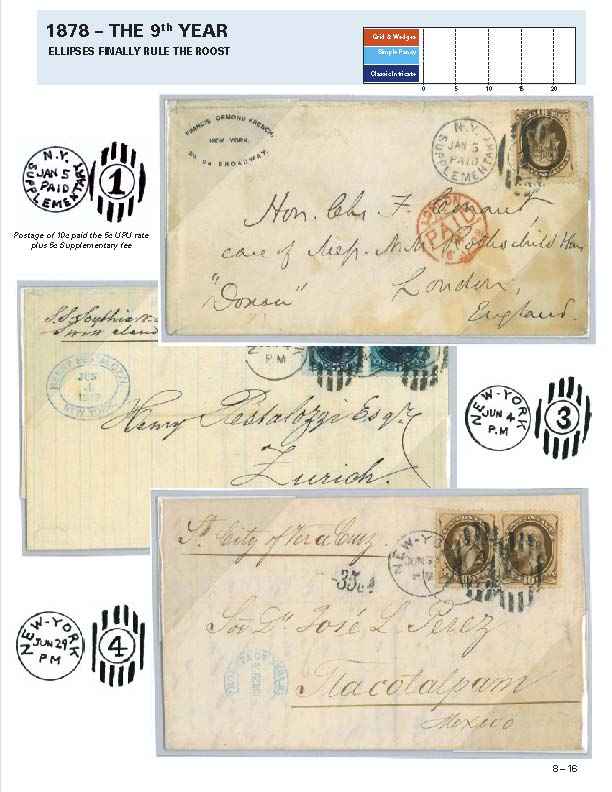 1878 – THE 9th YEAR
ELLIPSES FINALLY RULE THE ROOST
Grid & Wedges
Simple Fancy
Classic Intricate
0 5 10 15 20
FRANCIS ORMOND FRENCH,
NEW-YORK.
No. 94 BROADWAY.
N.Y.
JAN 5
PAID
SUPPLEMENTARY
N.Y.
JAN 5
PAID
SUPPLEMENTARY
1
Postage of 10c paid the 5c UPU rate
plus 5c Supplementary fee
LONDON
PAID
Hon. Chs. F.
care of Messrs. N.M. Rothschild
"Donau"
London,
England.
S.S. Scythia
HENRY PESTALOZZI
JUN
4
1878
NEW YORK
P.M
Henry Pestalozzi Esqr.
Zurich.
NEW-YORK
JUN 4
P.M
3
St. City of Vera Cruz
NEW-YORK
JUN 29
PM
35
Sor. Dn. José L. Perez
Tlacotalpam
Mexico
NEW-YORK
JUN 29
PM
4
8 – 16